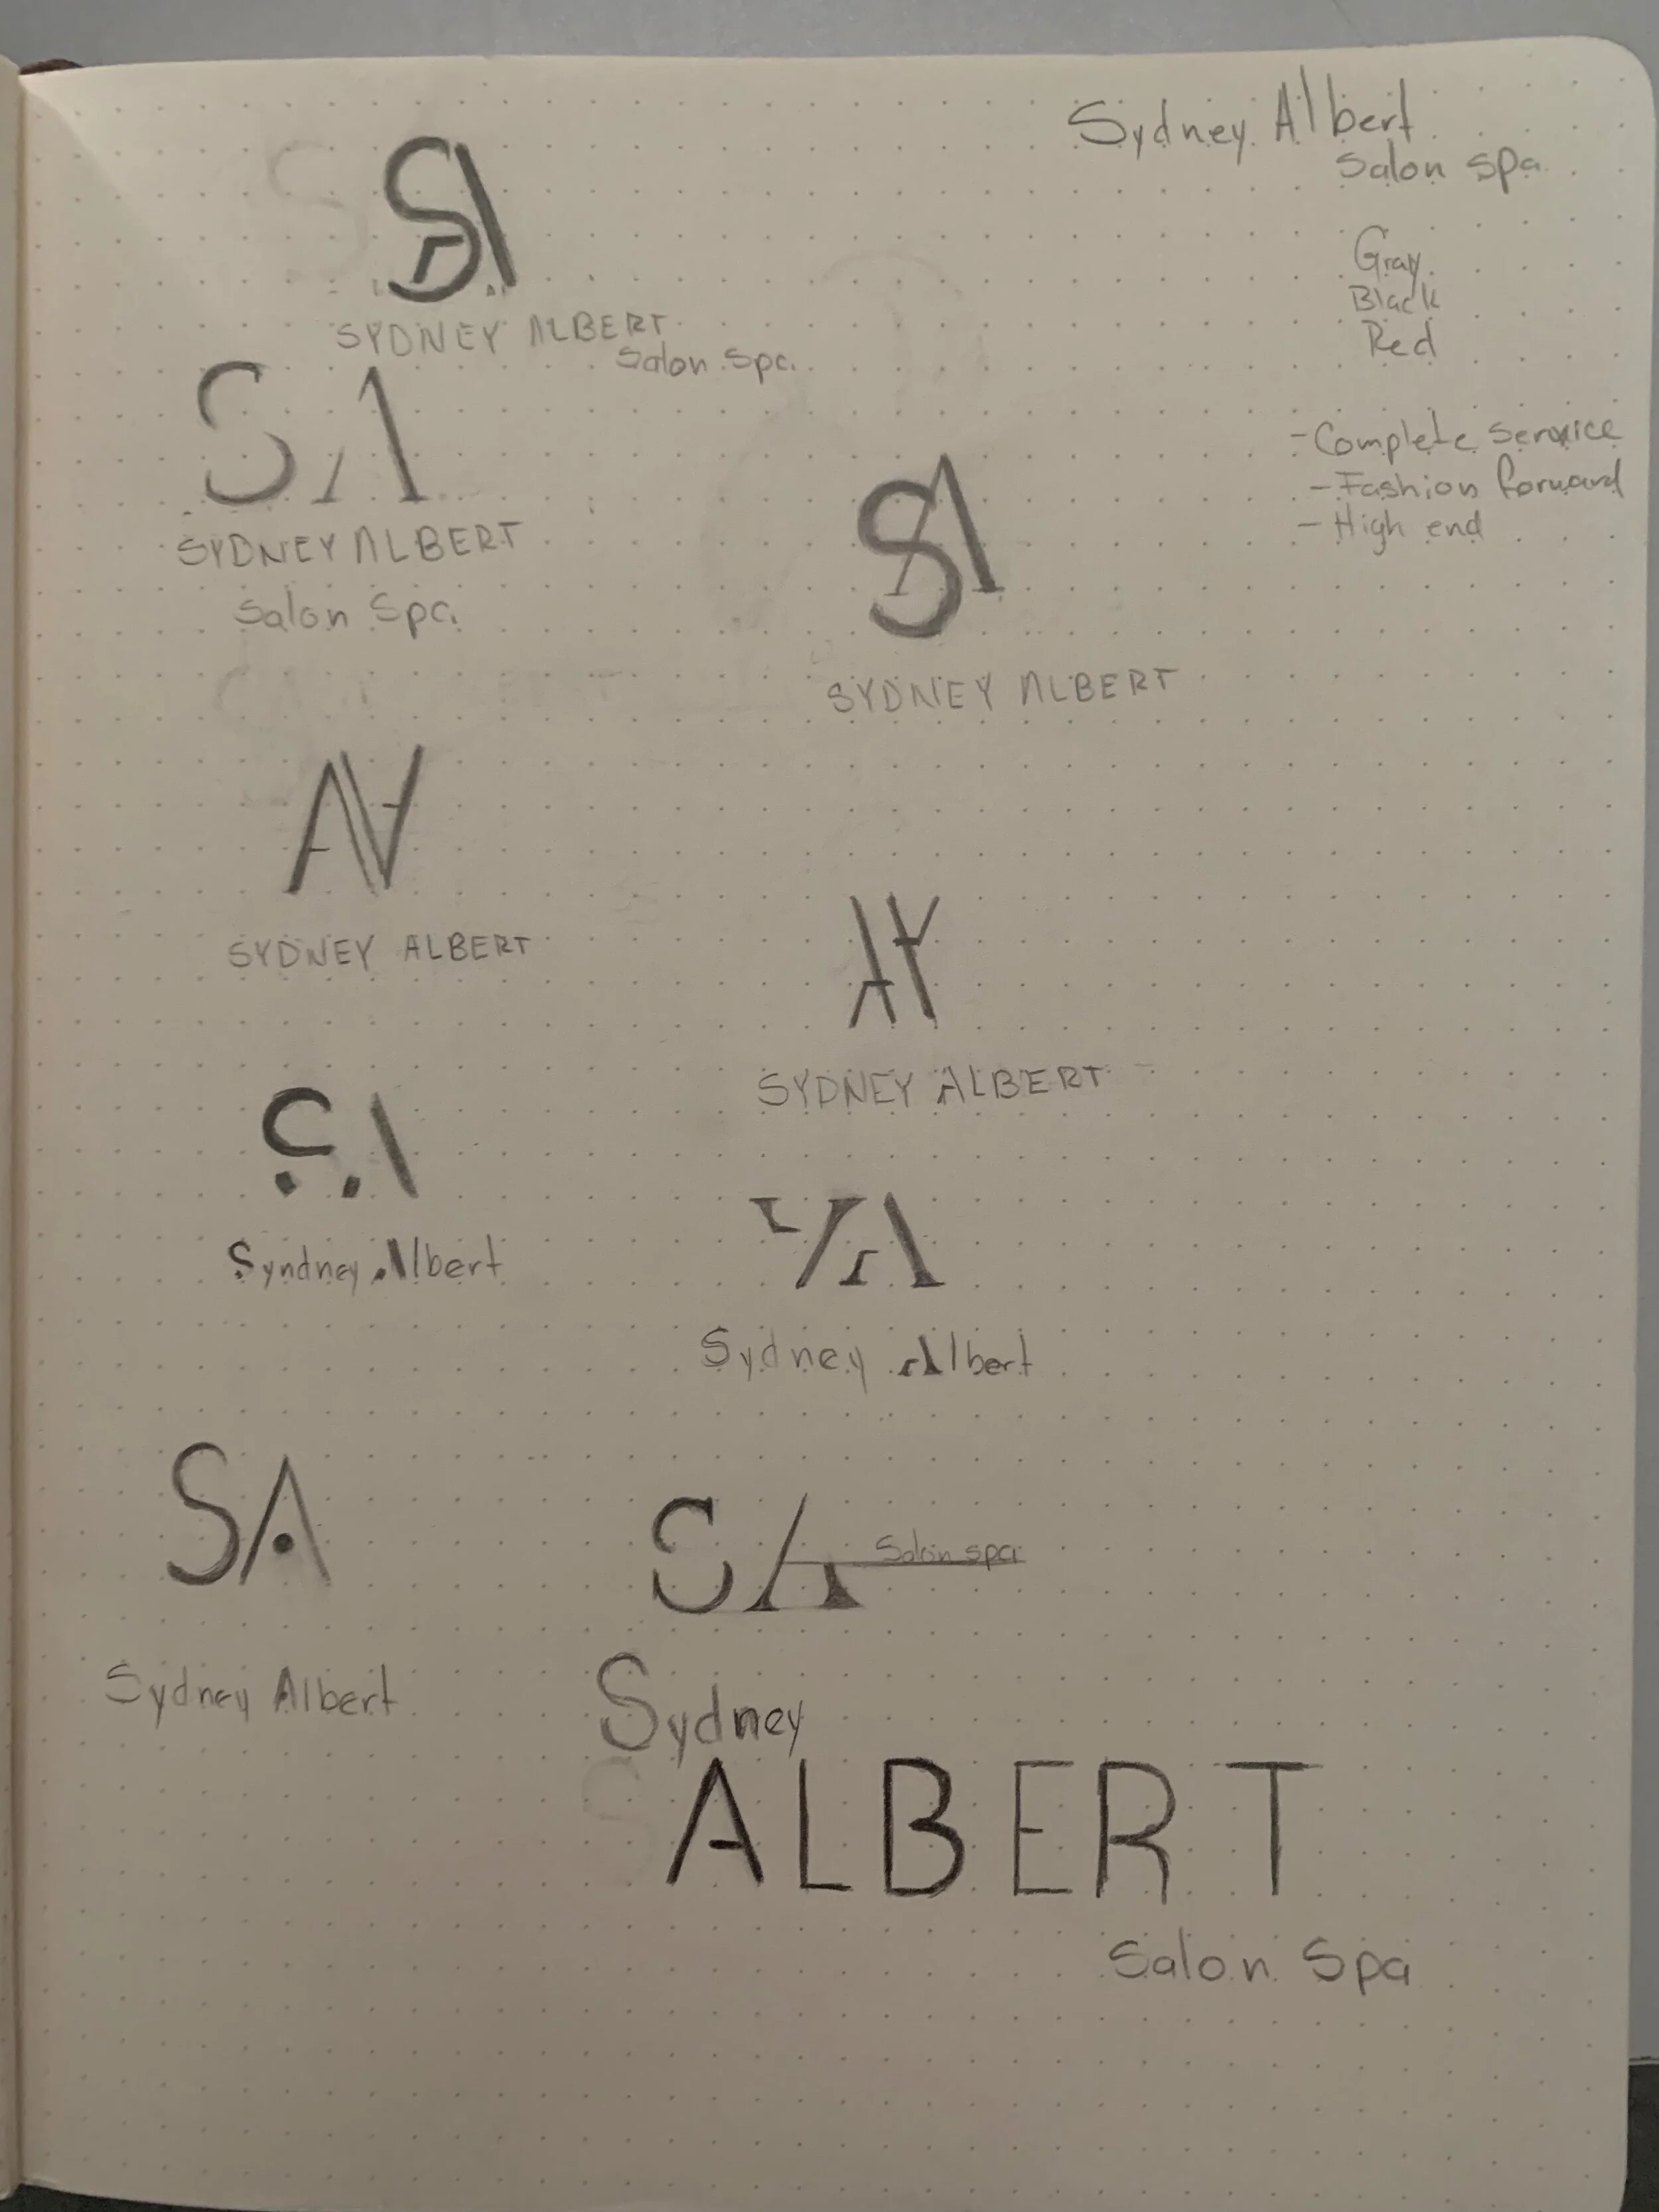 Sydney Albert
Salon Spa
Gray
Black
Red
- Complete service
- Fashion forward
- High end
SA
SYDNEY ALBERT
Salon Spa
SA
SYDNEY ALBERT
Salon Spa
SA
SYDNEY ALBERT
SYDNEY ALBERT
SYDNEY ALBERT
S.A
Syndney Albert
YA
Sydney Albert
SA
Sydney Albert
SA Salon spa
Sydney
ALBERT
Salon Spa